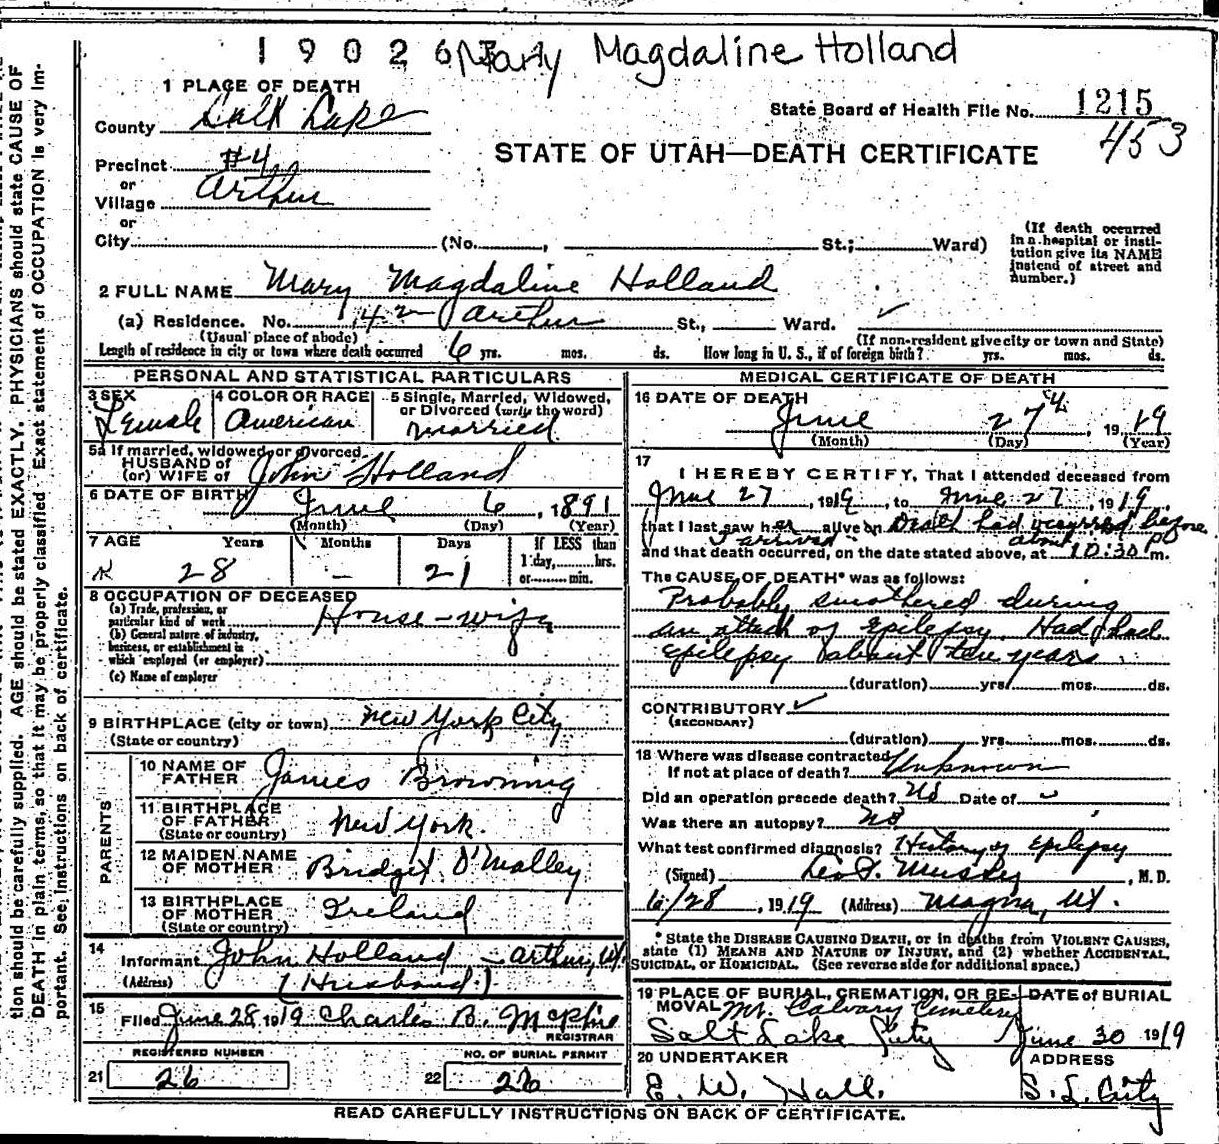 1902671 Mary Magdaline Holland
1 PLACE OF DEATH
State Board of Health File No. 1215
County Salt Lake
453
STATE OF UTAH—DEATH CERTIFICATE
Precinct #4
or
Village Arthur
or
City (No. , St.; Ward)
(If death occurred in a hospital or institution give its NAME instead of street and number.)
2 FULL NAME Mary Magdaline Holland
(a) Residence. No. 42 Arthur St., Ward.
(Usual place of abode) (If non-resident give city or town and State)
Length of residence in city or town where death occurred 6 yrs. mos. ds. How long in U. S., if of foreign birth? yrs. mos. ds.
PERSONAL AND STATISTICAL PARTICULARS
3 SEX Female
4 COLOR OR RACE American
5 Single, Married, Widowed, or Divorced (write the word) Married
5a If married, widowed, or divorced
HUSBAND of
(or) WIFE of John Holland
6 DATE OF BIRTH June 6, 1891
(Month) (Day) (Year)
7 AGE Years Months Days If LESS than
28 – 21 1 day, hrs.
or min.
8 OCCUPATION OF DECEASED
(a) Trade, profession, or particular kind of work House-wife
(b) General nature of industry, business, or establishment in which employed (or employer)
(c) Name of employer
9 BIRTHPLACE (city or town) New York City
(State or country)
PARENTS
10 NAME OF FATHER James Browning
11 BIRTHPLACE OF FATHER New York.
(State or country)
12 MAIDEN NAME OF MOTHER Bridget O'Malley
13 BIRTHPLACE OF MOTHER Ireland
(State or country)
14
Informant John Holland – Arthur, Ut.
(Address) (Husband.)
15
Filed June 28 1919 Charles B. McPhie
REGISTRAR
REGISTERED NUMBER
21 26
NO. OF BURIAL PERMIT
22 26
MEDICAL CERTIFICATE OF DEATH
16 DATE OF DEATH
June 27th, 1919
(Month) (Day) (Year)
17
I HEREBY CERTIFY, That I attended deceased from
June 27, 1919, to June 27, 1919.
that I last saw her alive on Death had occurred before
I arrived about P
and that death occurred, on the date stated above, at 10:30 m.
The CAUSE OF DEATH* was as follows:
Probably smothered during
an attack of Epilepsy. Had had
epilepsy about ten years.
(duration) yrs. mos. ds.
CONTRIBUTORY
(SECONDARY)
(duration) yrs. mos. ds.
18 Where was disease contracted
If not at place of death? Unknown
Did an operation precede death? No Date of
Was there an autopsy? No
What test confirmed diagnosis? History of Epilepsy
(Signed) Leo F. , M. D.
6/28, 1919 (Address) Magna, Ut.
* State the DISEASE CAUSING DEATH, or in deaths from VIOLENT CAUSES,
state (1) MEANS AND NATURE OF INJURY, and (2) whether ACCIDENTAL,
SUICIDAL, or HOMICIDAL. (See reverse side for additional space.)
19 PLACE OF BURIAL, CREMATION, OR REMOVAL
Mt. Calvary Cemetery
Salt Lake City
DATE of BURIAL
June 30 1919
20 UNDERTAKER
E. W. Hall.
ADDRESS
S. L. City
READ CAREFULLY INSTRUCTIONS ON BACK OF CERTIFICATE.
tion should be carefully supplied. AGE should be stated EXACTLY. PHYSICIANS should state CAUSE OF
DEATH in plain terms, so that it may be properly classified. Exact statement of OCCUPATION is very im-
portant. See instructions on back of certificate.